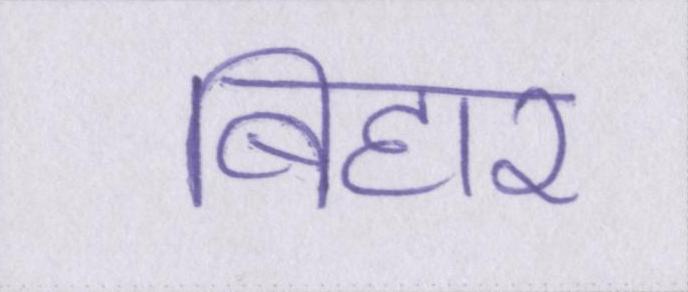 बिहार